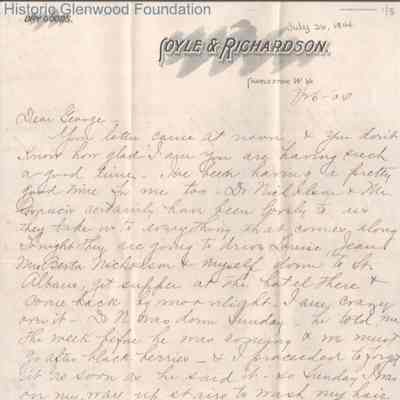 Historic Glenwood Foundation
DRY GOODS.
July 26, 1906
COYLE & RICHARDSON.
CHARLESTON W. VA
7/26-06
Dear George
Your letter came at noon & you don't
know how glad I am you are having such
a good time. I've been having a pretty
good time in me too - Dr Nicholson & Mr
certainly have been lovely to us
they take us to everything that comes along
Tonight they are going to drive Louise, Jean
Miss Berta Nicholson & myself down to St
Albans, get supper at the hotel there &
come back by moonlight - I am crazy
over it - Dr N. was down Sunday - he told me
the week before he was & we must
go after black berries - & I proceeded to forget
it as soon as he said it - so Sunday I was
on my way up stairs to wash my hair